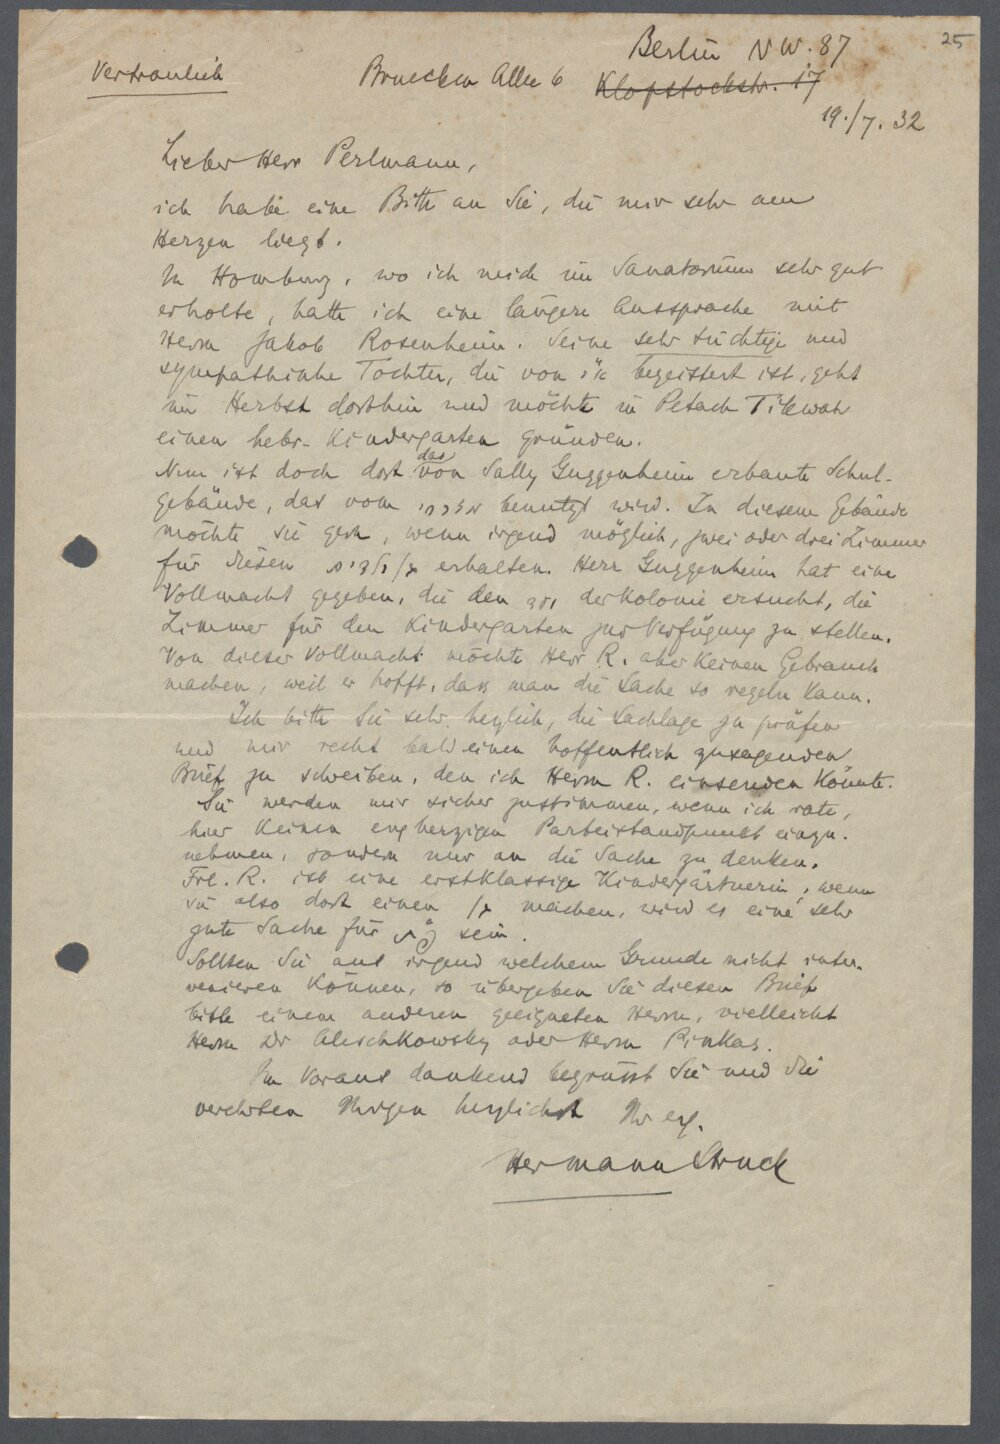 25
Vertraulich
Bruecken Allee 6
Berlin NW. 87
Klopstockstr. 17
19./7. 32
Lieber Herr Perlmann,
ich habe eine Bitte an Sie, die mir sehr am
Herzen liegt.
In Homburg, wo ich mich im Sanatorium sehr gut
erholte, hatte ich eine längere Aussprache mit
Herrn Jakob Rosenheim. Seine sehr tüchtige und
sympathische Tochter, die von א״י begeistert ist, geht
im Herbst dorthin und möchte in Petach Tikwah
einen hebr. Kindergarten gründen.
Nun ist doch dort das von Sally Guggenheim erbaute Schul-
gebäude, das vom מזרחי benutzt wird. In diesem Gebäude
möchte sie gern, wenn irgend möglich, zwei oder drei Zimmer
für diesen גן ילדים erhalten. Herr Guggenheim hat eine
Vollmacht gegeben, die den ועד der Kolonie ersucht, die
Zimmer für den Kindergarten zur Verfügung zu stellen.
Von dieser Vollmacht möchte Herr R. aber keinen Gebrauch
machen, weil er hofft, dass man die Sache so regeln kann.
Ich bitte Sie sehr herzlich, die Sachlage zu prüfen
und mir recht bald einen hoffentlich zusagenden
Brief zu schreiben, den ich Herrn R. einsenden könnte.
Sie werden mir sicher zustimmen, wenn ich rate,
hier keinen engherzigen Parteistandpunkt einzu-
nehmen, sondern nur an die Sache zu denken.
Frl. R. ist eine erstklassige Kindergärtnerin, wenn
sie also dort einen גן machen, wird es eine sehr
gute Sache für sein.
Sollten Sie aus irgend welchem Grunde nicht inter-
venieren können, so übergeben Sie diesen Brief
bitte einem anderen geeigneten Herrn, vielleicht
Herrn Dr Aleschkowsky oder Herrn Pinkas.
Im Voraus dankend begrüsst Sie und die
verehrten Ihrigen herzlichst Ihr erg.
Hermann Struck